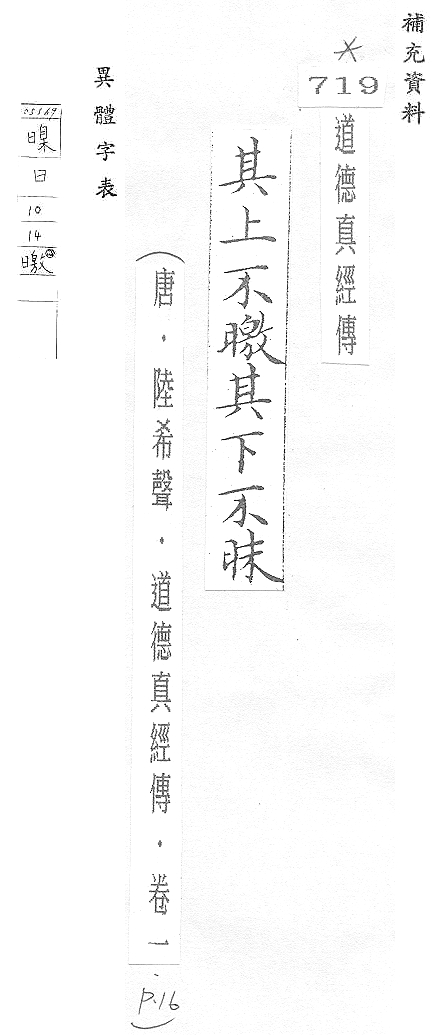 補充資料
*
719
道德真經傳
其上不曒其下不昧
（唐．陸希聲．道德真經傳．卷一
p.16）
異體字表
05569
暞
日
10
14
曒